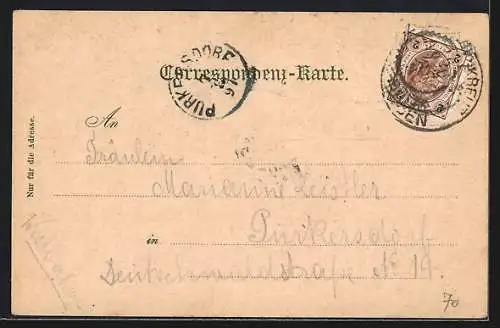 PURKERSDORF
Correspondenz-Karte.
Nur für die Adresse.
An
Fräulein
Marianne Zeistler
in Purkersdorf
Deutschwaldstraße No 19.
70